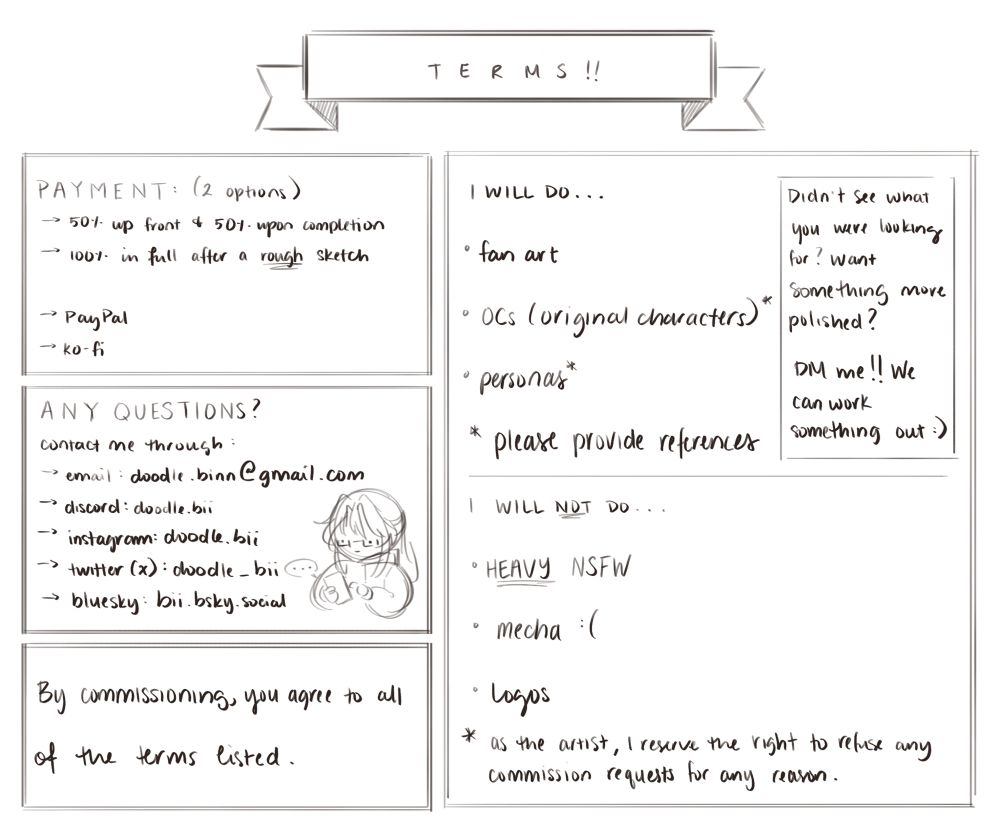 TERMS!!
PAYMENT: (2 options)
→ 50% up front & 50% upon completion
→ 100% in full after a rough sketch
→ PayPal
→ ko-fi
ANY QUESTIONS?
contact me through:
→ email: doodle.binn@gmail.com
→ discord: doodle.bii
→ instagram: doodle.bii
→ twitter (x): doodle_bii
→ bluesky: bii.bsky.social
By commissioning, you agree to all
of the terms listed.
I WILL DO...
• fan art
• OCs (original characters)*
• personas*
* please provide references
Didn't see what
you were looking
for? Want
something more
polished?
DM me!! We
can work
something out :)
I WILL NOT DO...
• HEAVY NSFW
• mecha :(
• Logos
* as the artist, I reserve the right to refuse any
commission requests for any reason.